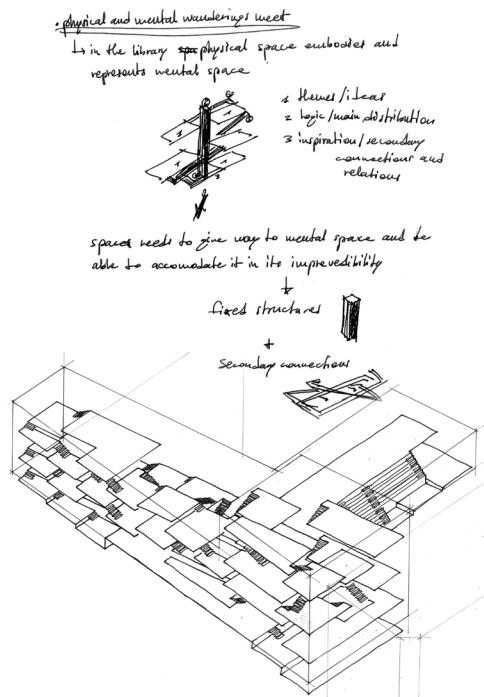 . physical and mental wanderings meet
↳ in the library physical space embodies and
represents mental space
1 themes/ideas
2 logic/main distribution
3 inspiration/secondary
connections and
relations
space needs to give way to mental space and be
able to accomodate it in its imprevedibility
fixed structures
+
secondary connections